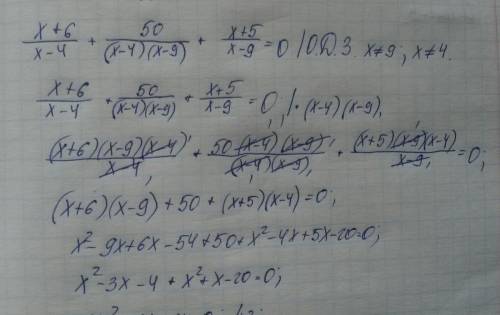 (x+6)/(x-4) + 50/((x-4)(x-9)) + (x+5)/(x-9) = 0 / О.Д.З. x≠9; x≠4.
(x+6)/(x-4) + 50/((x-4)(x-9)) + (x+5)/(x-9) = 0, /·(x-4)(x-9),
(x+6)(x-9)(x-4)/(x-4) + 50(x-4)(x-9)/((x-4)(x-9)) + (x+5)(x-9)(x-4)/(x-9) = 0;
(x+6)(x-9)+50+(x+5)(x-4)=0;
x²-9x+6x-54+50+x²-4x+5x-20=0;
x²-3x-4+x²+x-20=0;